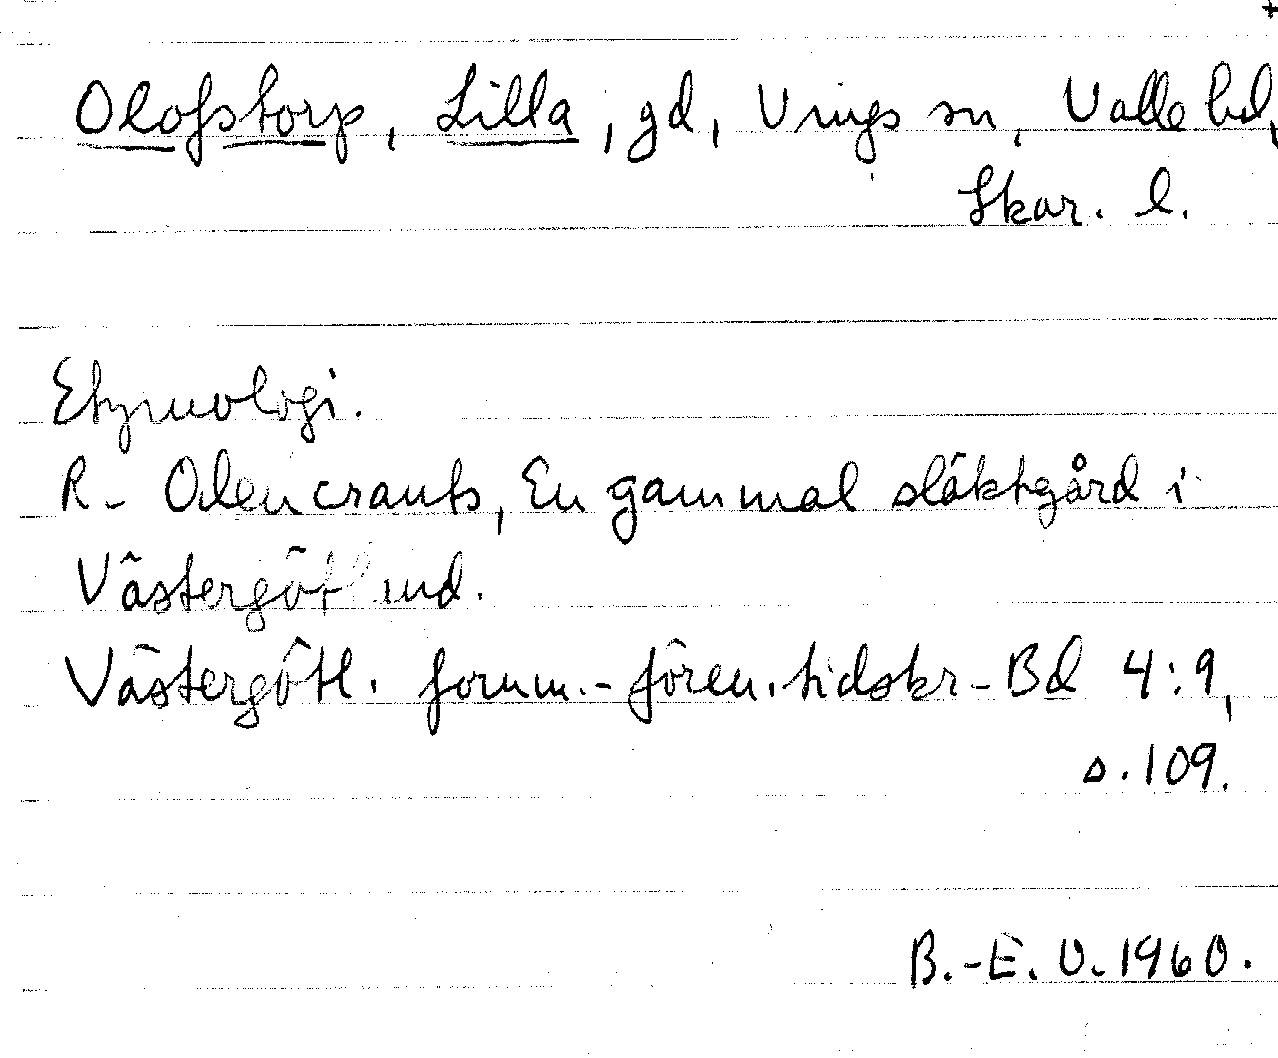 +
Olofstorp, Lilla, gd, Vings sn, Valle hd,
Skar. l.
Etymologi.
R. Odencrants, En gammal släktgård i
Västergötland.
Västergötl. fornm.-fören. tidskr. Bd 4:9,
s. 109.
B.-E. U. 1960.